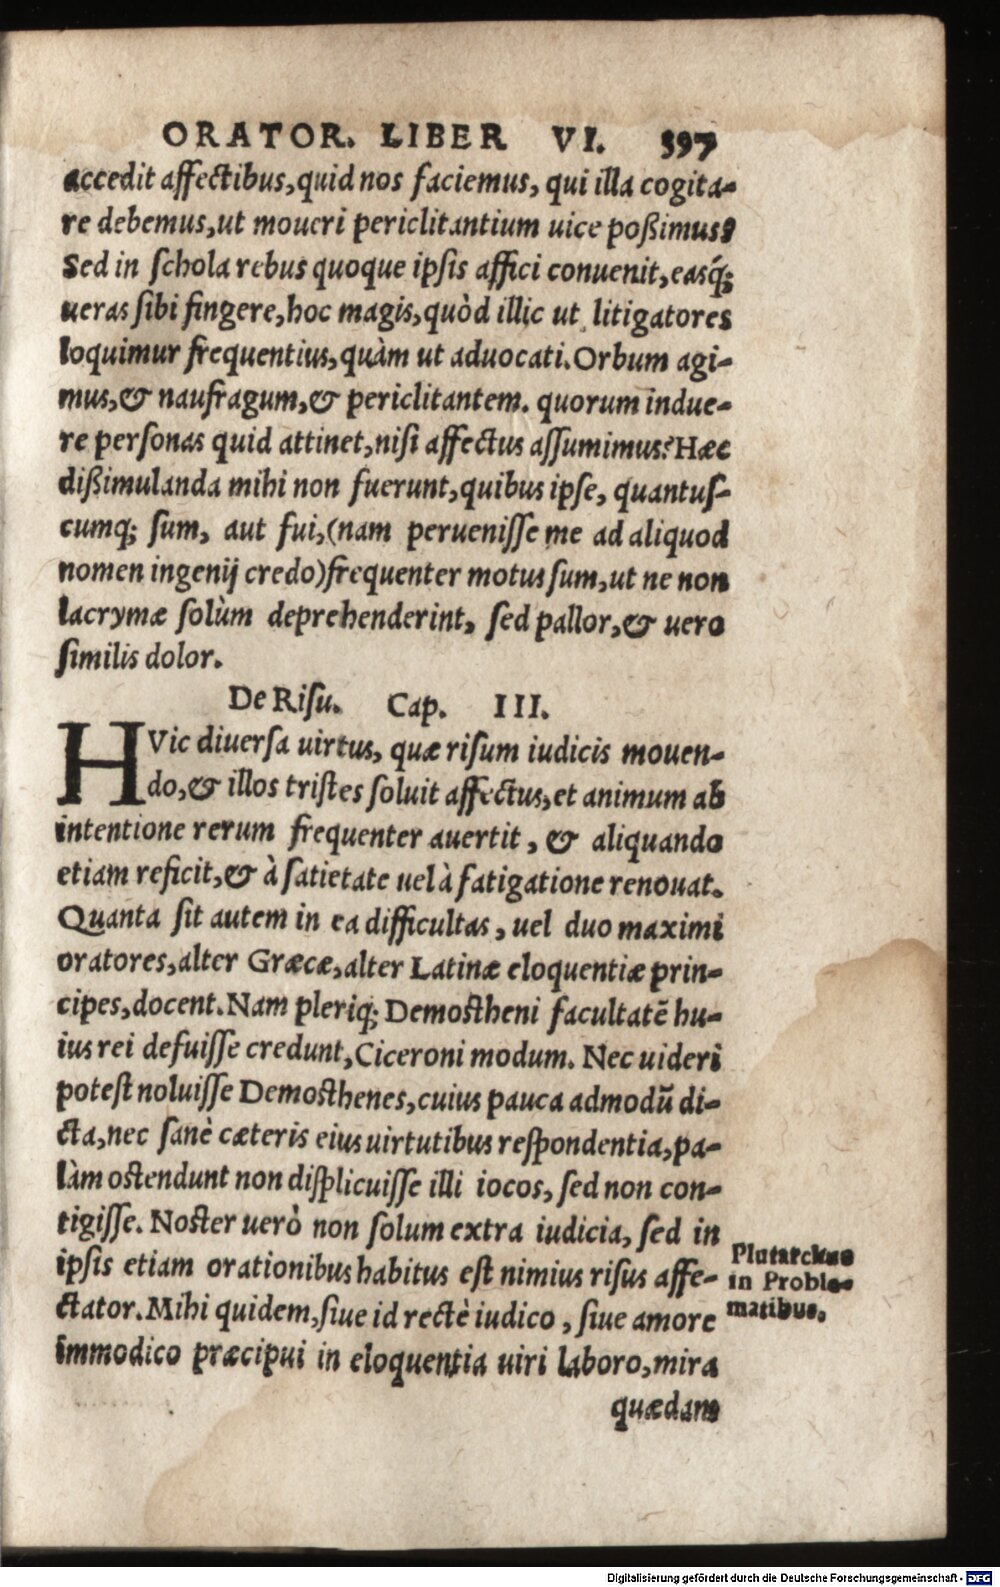 ORATOR. LIBER VI. 397
accedit affectibus, quid nos faciemus, qui illa cogita-
re debemus, ut moueri periclitantium uice poßimus?
Sed in schola rebus quoque ipsis affici conuenit, easq́;
ueras sibi fingere, hoc magis, quòd illic ut litigatores
loquimur frequentius, quàm ut aduocati. Orbum agi-
mus, & naufragum, & periclitantem. quorum indue-
re personas quid attinet, nisi affectus assumimus? Hæc
dißimulanda mihi non fuerunt, quibus ipse, quantus-
cumq; sum, aut fui, (nam peruenisse me ad aliquod
nomen ingenij credo) frequenter motus sum, ut ne non
lacrymæ solùm deprehenderint, sed pallor, & uero
similis dolor.
De Risu. Cap. III.
HVic diuersa uirtus, quæ risum iudicis mouen-
do, & illos tristes soluit affectus, et animum ab
intentione rerum frequenter auertit, & aliquando
etiam reficit, & à satietate uel à fatigatione renouat.
Quanta sit autem in ea difficultas, uel duo maximi
oratores, alter Græcæ, alter Latinæ eloquentiæ prin-
cipes, docent. Nam pleriq; Demostheni facultatē hu-
ius rei defuisse credunt, Ciceroni modum. Nec uideri
potest noluisse Demosthenes, cuius pauca admodū di-
cta, nec sanè cæteris eius uirtutibus respondentia, pa-
làm ostendunt non displicuisse illi iocos, sed non con-
tigisse. Noster uerò non solum extra iudicia, sed in
ipsis etiam orationibus habitus est nimius risus affe-
ctator. Mihi quidem, siue id rectè iudico, siue amore
immodico præcipui in eloquentia uiri laboro, mira
quædam
Plutarchus
in Proble-
matibus.
Digitalisierung gefördert durch die Deutsche Forschungsgemeinschaft - DFG